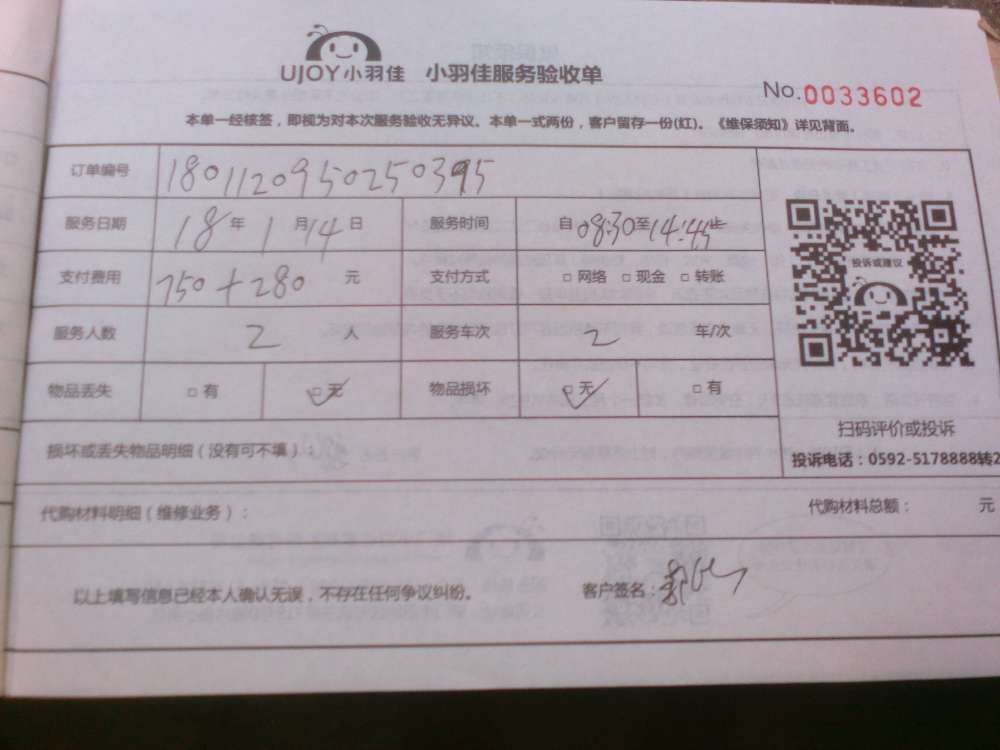 UJOY小羽佳 小羽佳服务验收单
No.0033602
本单一经核签，即视为对本次服务验收无异议。本单一式两份，客户留存一份(红)。《维保须知》详见背面。
订单编号 1801120950250395
服务日期 18年 1月14日 服务时间 自08:30至14:45止
支付费用 750+280 元 支付方式 □网络 □现金 □转账
投诉或建议
服务人数 2 人 服务车次 2 车/次
物品丢失 □有 □无 物品损坏 □无 □有
扫码评价或投诉
损坏或丢失物品明细（没有可不填）：
投诉电话：0592-5178888转2
代购材料明细（维修业务）： 代购材料总额： 元
以上填写信息已经本人确认无误，不存在任何争议纠纷。 客户签名：